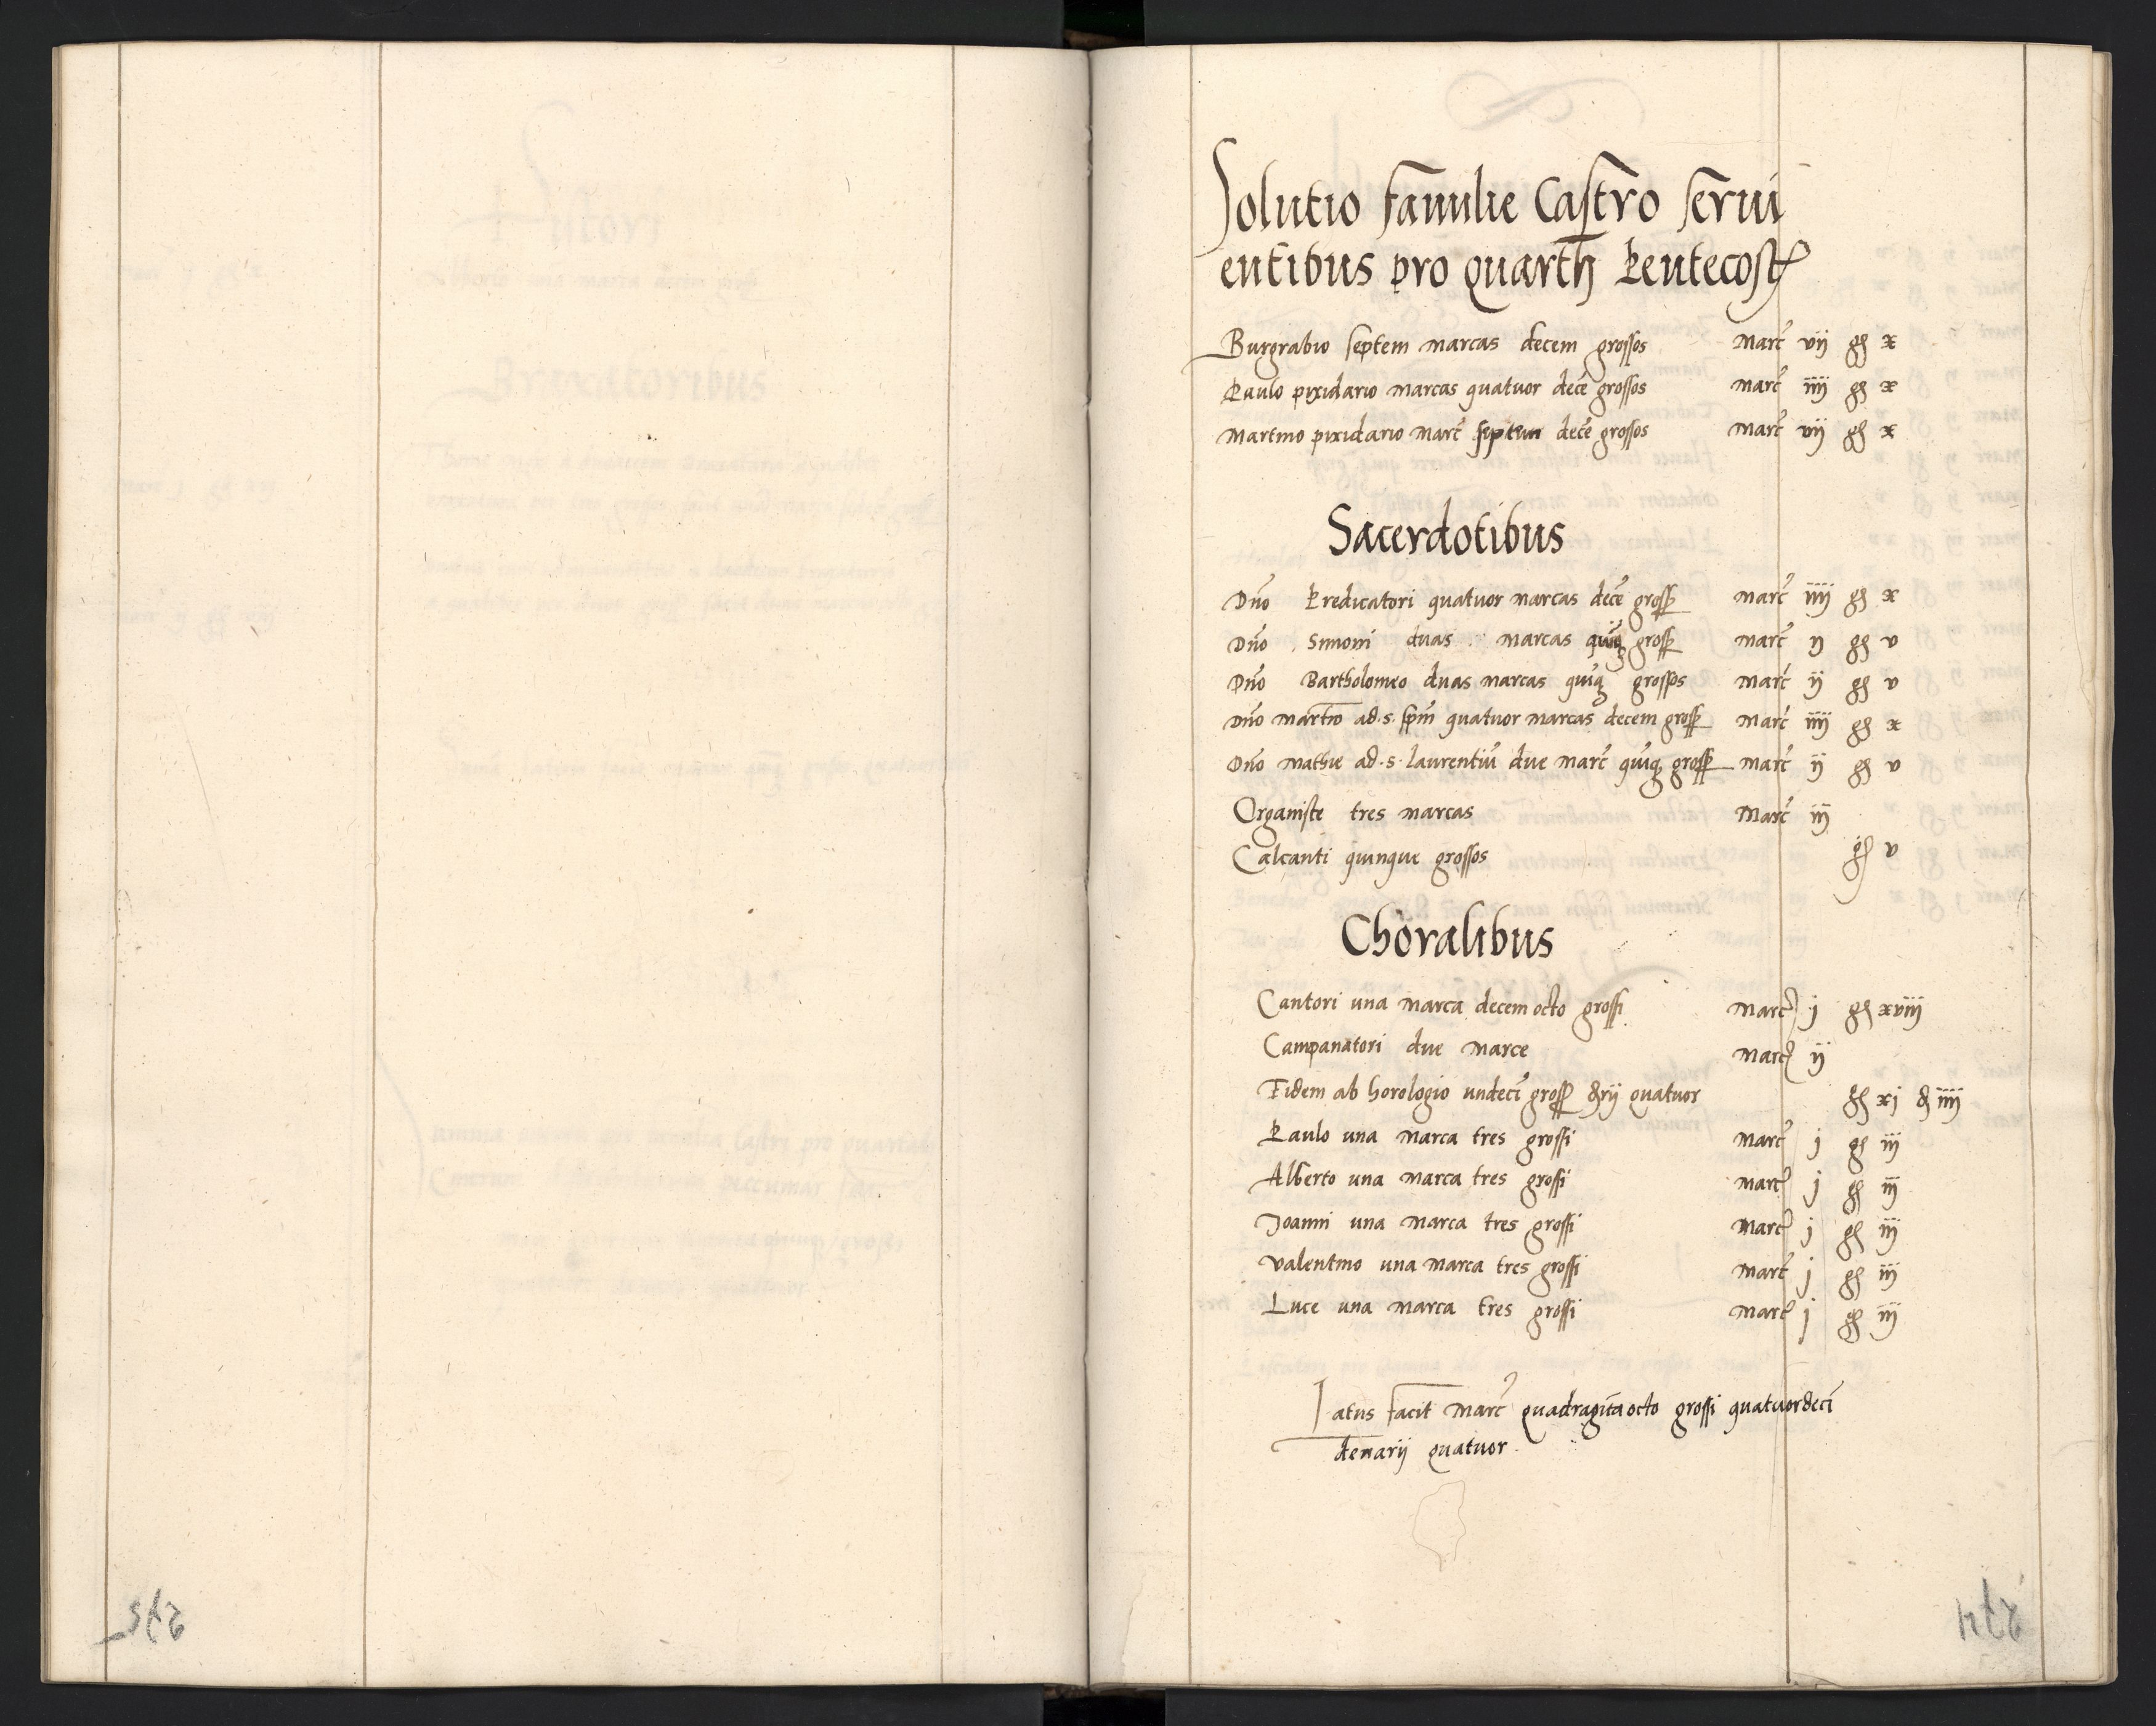 Solutio familie Castro servi
entibus pro quarth Pentecost
Burgrabio septem marcas decem grossos Marc vij gs x
Paulo pixidario marcas quatuor dece grossos marc iiij gs x
Martino pixidario marc septem dece grossos marc vij gs x
Sacerdotibus
Dno Predicatori quatuor marcas dece gross marc iiij gs x
Dno Simoni duas marcas quiq gross marc ij gs v
Dno Bartholomeo duas marcas quiq grossos marc ij gs v
Dno martino ad s. spm quatuor marcas decem gross marc iiij gs x
Dno mathie ad s. laurentiu due marc quiq gross marc ij gs v
Organiste tres marcas Marc iij
Calcanti quinque grossos gs v
Choralibus
Cantori una marca decem octo grossi marc j gs xviij
Campanatori due marce marc ij
Eidem ab horologio undeci gross drij quatuor gs xj d iiij
Paulo una marca tres grossi marc j gs iij
Alberto una marca tres grossi marc j gs iij
Joanni una marca tres grossi marc j gs iij
Valentino una marca tres grossi marc j gs iij
Luce una marca tres grossi marc j gs iij
Latus facit Marc quadragita octo grossi quatuordeci
denarij quatuor
275
274